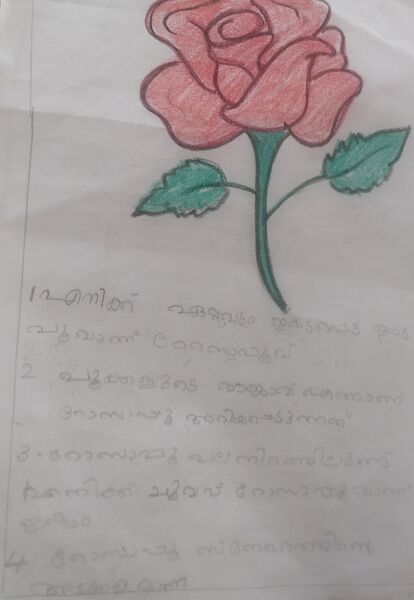 1 എനിക്ക് ഏറ്റവും ഇഷ്ടപ്പെട്ട ഒരു
പൂവാണ് റോസാപൂവ്
2 പൂക്കളുടെ രാജാവ് എന്നാണ്
റോസാപ്പൂ അറിയപ്പെടുന്നത്
3. റോസാപ്പൂ പല നിറത്തിലുണ്ട്
എനിക്ക് ചുവപ്പ് റോസാപ്പൂ മാണ്
ഇഷ്ടം
4 റോസാപ്പൂ സ്നേഹത്തിന്റെ
അടയാളമാണ്